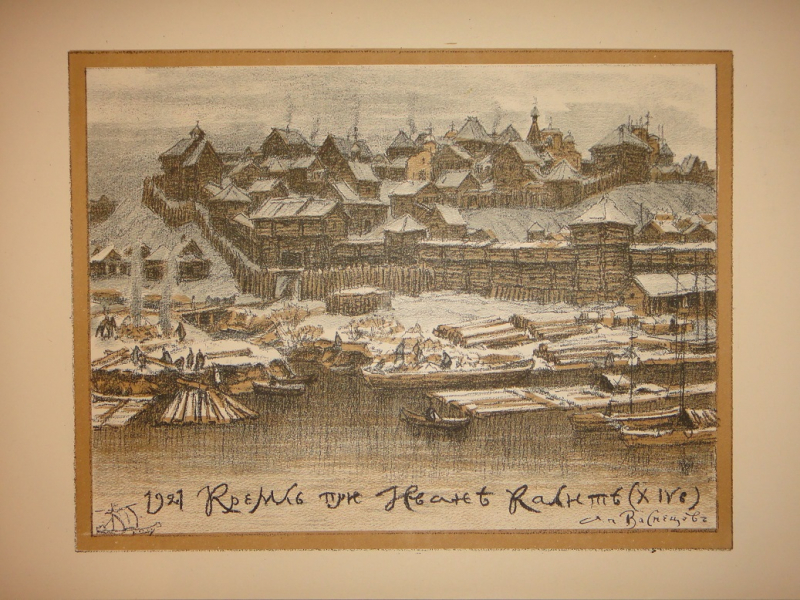 1921 Кремль при Иванѣ Калитѣ (XIV в)
Ап Васнецовъ